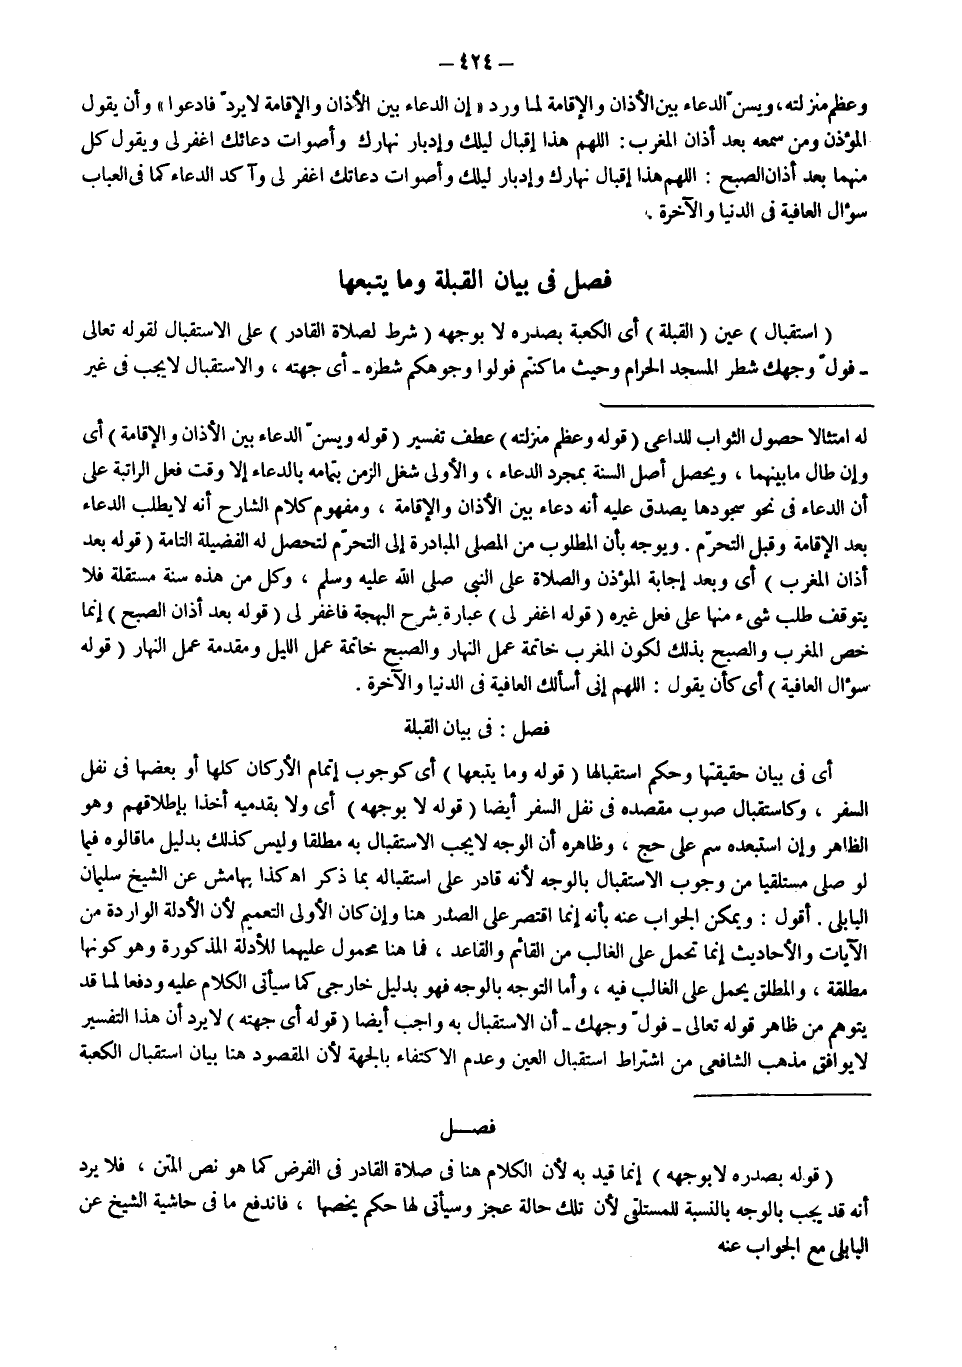 ـ ٤٢٤ ـ
وعظم منزلته، ويسنّ الدعاء بين الأذان والإقامة لما ورد « إن الدعاء بين الأذان والإقامة لايردّ فادعوا » وأن يقول
المؤذن ومن سمعه بعد أذان المغرب: اللهم هذا إقبال ليلك وإدبار نهارك وأصوات دعاتك اغفر لى ويقول كل
منهما بعد أذان الصبح : اللهم هذا إقبال نهارك وإدبار ليلك وأصوات دعاتك اغفر لى وآكد الدعاء كما فى العباب
سؤال العافية فى الدنيا والآخرة .
فصل فى بيان القبلة وما يتبعها
( استقبال ) عين ( القبلة ) أى الكعبة بصدره لا بوجهه ( شرط لصلاة القادر ) على الاستقبال لقوله تعالى
ـ فولّ وجهك شطر المسجد الحرام وحيث ما كنتم فولوا وجوهكم شطره ـ أى جهته ، والاستقبال لايجب فى غير
له امتثالا حصول الثواب للداعى ( قوله وعظم منزلته ) عطف تفسير ( قوله ويسنّ الدعاء بين الأذان والإقامة ) أى
وإن طال مابينهما ، ويحصل أصل السنة بمجرد الدعاء ، والأولى شغل الزمن بتمامه بالدعاء إلا وقت فعل الراتبة على
أن الدعاء فى نحو سجودها يصدق عليه أنه دعاء بين الأذان والإقامة ، ومفهوم كلام الشارح أنه لايطلب الدعاء
بعد الإقامة وقبل التحرّم . ويوجه بأن المطلوب من المصلى المبادرة إلى التحرّم لتحصل له الفضيلة التامة ( قوله بعد
أذان المغرب ) أى وبعد إجابة المؤذن والصلاة على النبى صلى الله عليه وسلم ، وكل من هذه سنة مستقلة فلا
يتوقف طلب شىء منها على فعل غيره ( قوله اغفر لى ) عبارة شرح البهجة فاغفر لى ( قوله بعد أذان الصبح ) إنما
خص المغرب والصبح بذلك لكون المغرب خاتمة عمل النهار والصبح خاتمة عمل الليل ومقدمة عمل النهار ( قوله
سؤال العافية ) أى كأن يقول : اللهم إنى أسألك العافية فى الدنيا والآخرة .
فصل : فى بيان القبلة
أى فى بيان حقيقتها وحكم استقبالها ( قوله وما يتبعها ) أى كوجوب إتمام الأركان كلها أو بعضها فى نفل
السفر ، وكاستقبال صوب مقصده فى نفل السفر أيضا ( قوله لا بوجهه ) أى ولا بقدميه أخذا بإطلاقهم وهو
الظاهر وإن استبعده سم على حج ، وظاهره أن الوجه لايجب الاستقبال به مطلقا وليس كذلك بدليل ماقالوه فيما
لو صلى مستلقيا من وجوب الاستقبال بالوجه لأنه قادر على استقباله بما ذكر اه كذا بهامش عن الشيخ سليمان
البابلى . أقول : ويمكن الجواب عنه بأنه إنما اقتصر على الصدر هنا وإن كان الأولى التعميم لأن الأدلة الواردة من
الآيات والأحاديث إنما تحمل على الغالب من القائم والقاعد ، فما هنا محمول عليهما للأدلة المذكورة وهو كونها
مطلقة ، والمطلق يحمل على الغالب فيه ، وأما التوجه بالوجه فهو بدليل خارجى كما سيأتى الكلام عليه ودفعا لما قد
يتوهم من ظاهر قوله تعالى ـ فولّ وجهك ـ أن الاستقبال به واجب أيضا ( قوله أى جهته ) لايرد أن هذا التفسير
لايوافق مذهب الشافعى من اشتراط استقبال العين وعدم الاكتفاء بالجهة لأن المقصود هنا بيان استقبال الكعبة
فصـــل
( قوله بصدره لابوجهه ) إنما قيد به لأن الكلام هنا فى صلاة القادر فى الفرض كما هو نص المتن ، فلا يرد
أنه قد يجب بالوجه بالنسبة للمستلقى لأن تلك حالة عجز وسيأتى لها حكم يخصها ، فاندفع ما فى حاشية الشيخ عن
البابلى مع الجواب عنه